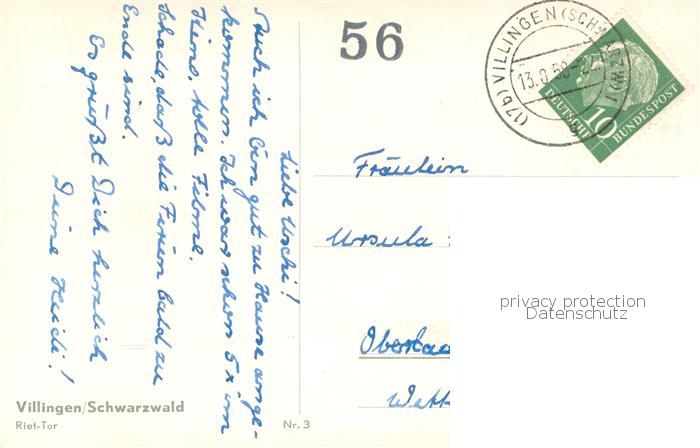 56
(17b) VILLINGEN (SCHWARZW) 1
13.9.58
DEUTSCHE
BUNDESPOST
10
Liebe Uschi!
Auch ich bin gut zu Hause ange-
kommen. Ich war schon 5x im
Kino, tolle Filme.
Schade, daß die Ferien bald zu
Ende sind.
Es grüßt Dich herzlich
Deine Heidi!
Fräulein
Ursula
privacy protection
Datenschutz
Villingen/Schwarzwald
Riet-Tor
Nr. 3